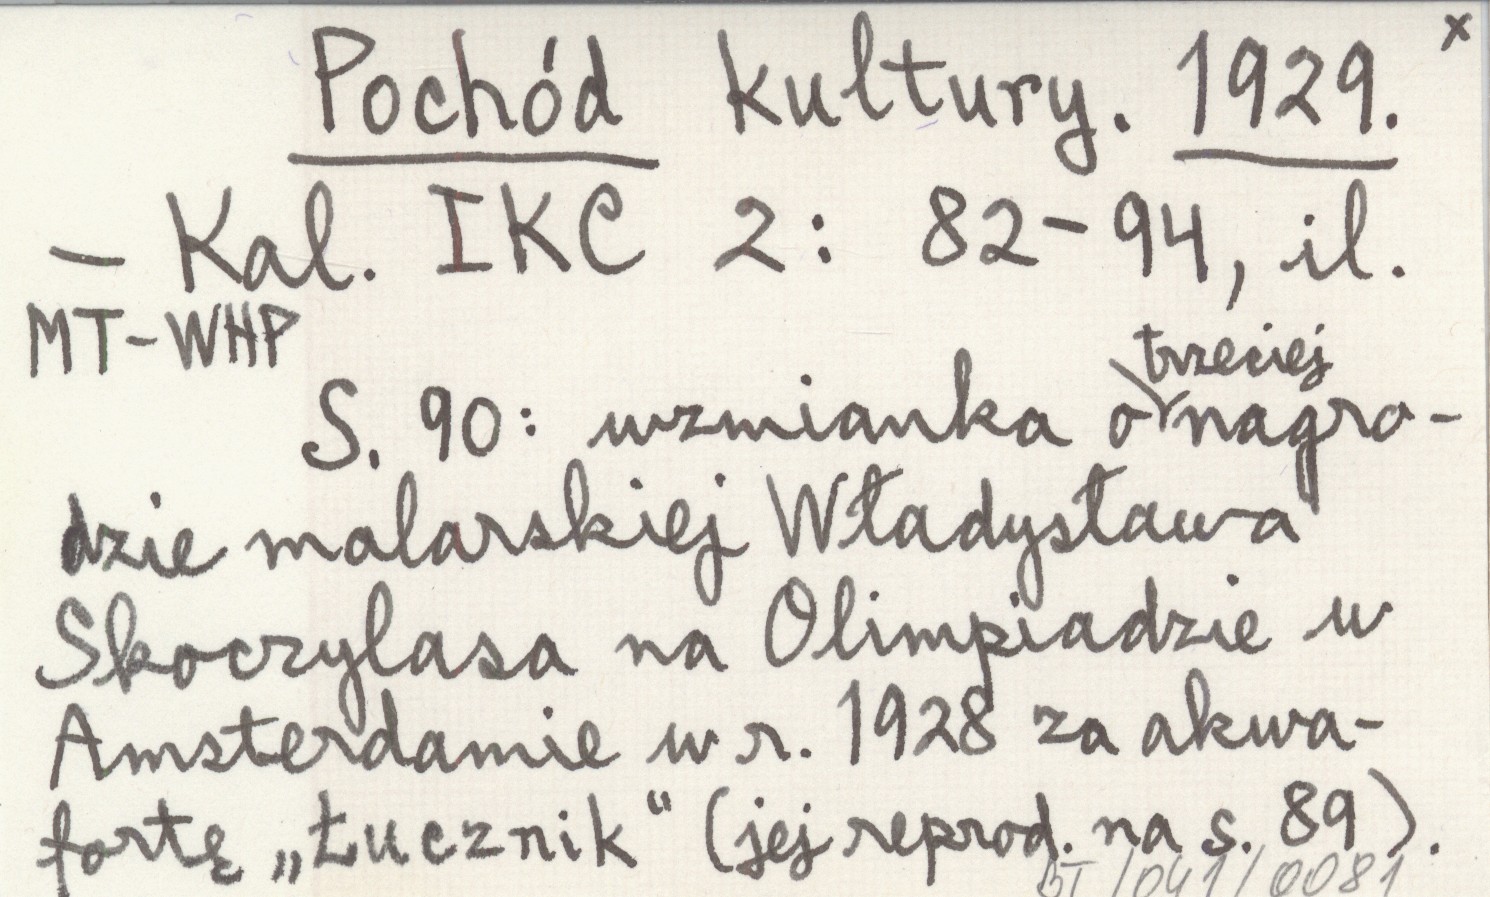 x
Pochód kultury. 1929.
– Kal. IKC 2: 82–94, il.
MT-WHP
trzeciej
S. 90: wzmianka o nagro-
dzie malarskiej Władysława
Skoczylasa na Olimpiadzie w
Amsterdamie w r. 1928 za akwa-
fortę „Łucznik“ (jej reprod. na s. 89).
BT/041/0081